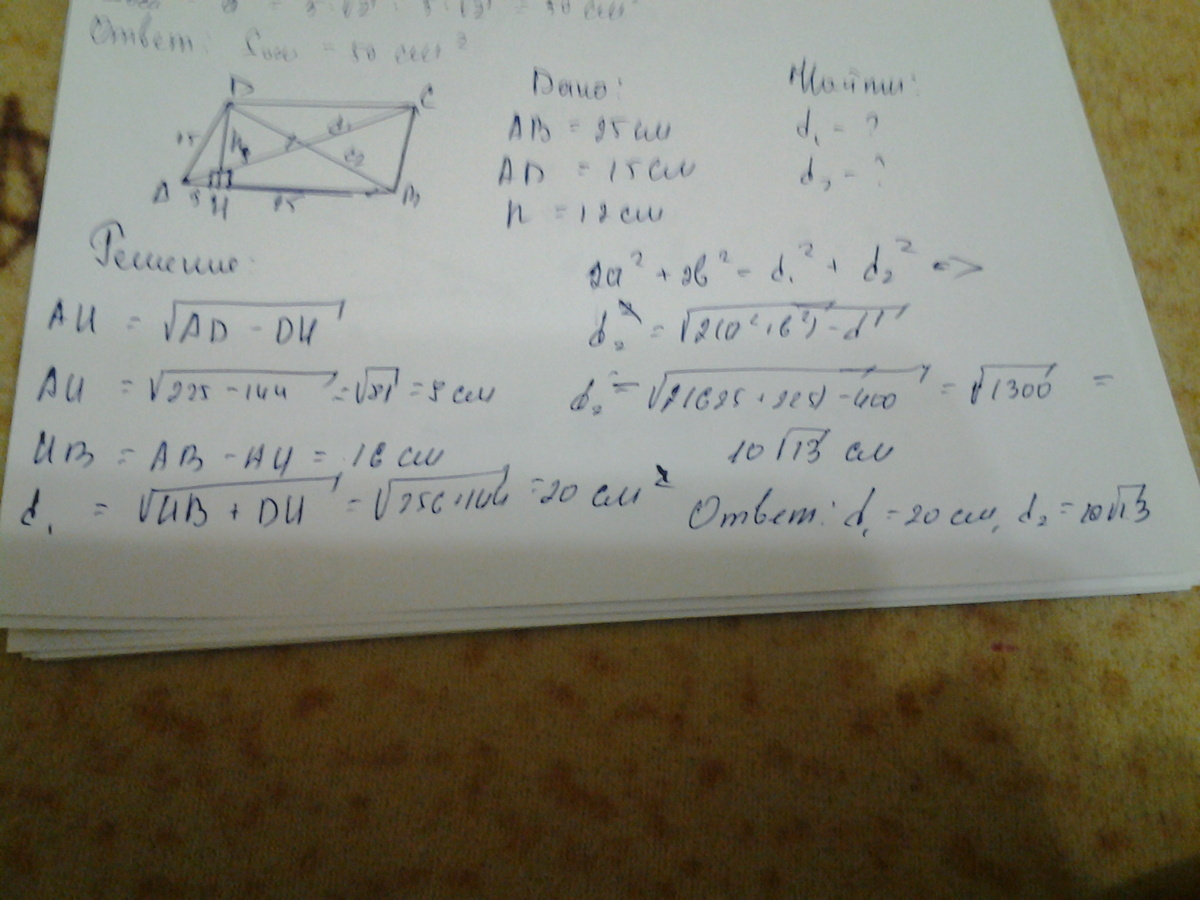 Ответ: Sосн = 50 см²
D
C
15
h
d₁
d₂
A
9
H
25
B
Дано:
AB = 25 см
AD = 15 см
h = 12 см
Найти:
d₁ - ?
d₂ - ?
Решение:
AH = √AD - DH
AH = √225 - 144 = √81 = 9 см
HB = AB - AH = 16 см
d₁ = √HB + DH = √256 + 144 = 20 см
2a² + 2b² = d₁² + d₂² =>
d₂ = √2(a² + b²) - d²
d₂ = √2(625 + 225) - 400 = √1300 =
10√13 см
Ответ: d₁ = 20 см, d₂ = 10√13